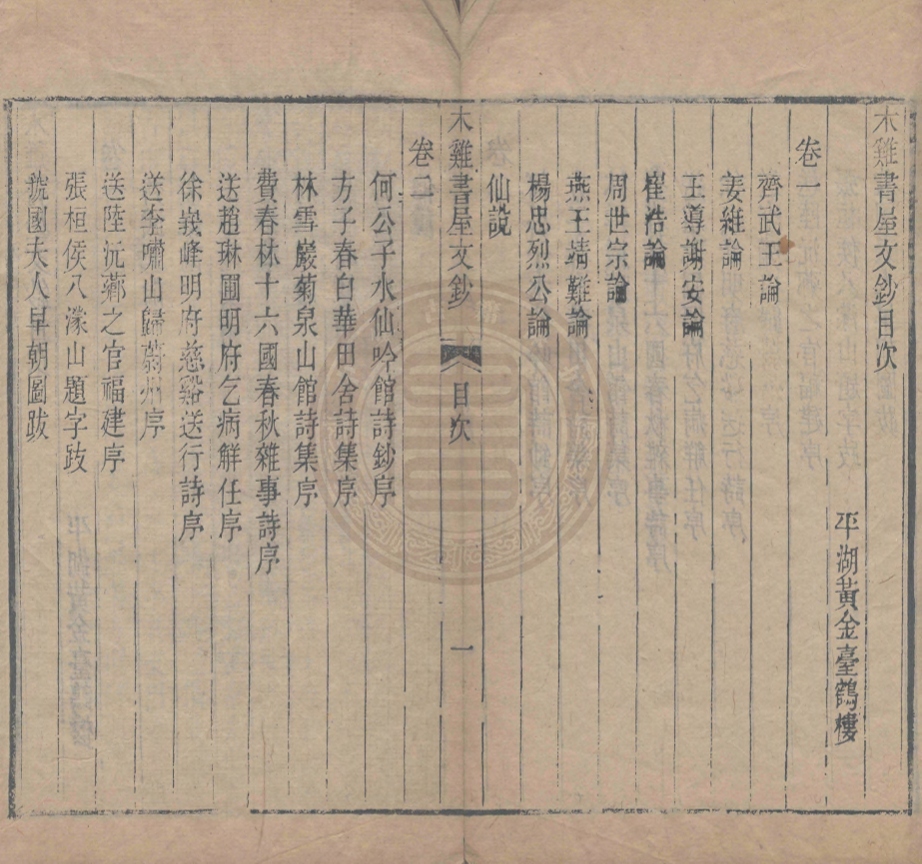 木雞書屋文鈔目次
平湖黃金臺鶴樓
卷一
齊武王論
姜維論
王導謝安論
崔浩論
周世宗論
燕王靖難論
楊忠烈公論
仙説
木雞書屋文鈔 目次 一
卷二
何公子水仙吟館詩鈔序
方子春白華田舍詩集序
林雪巖菊泉山館詩集序
費春林十六國春秋雜事詩序
送趙琳圃明府乞病解任序
徐峩峰明府慈谿送行詩序
送李嘯山歸蔚州序
送陸沅薌之官福建序
張桓侯八濛山題字跋
虢國夫人早朝圖跋